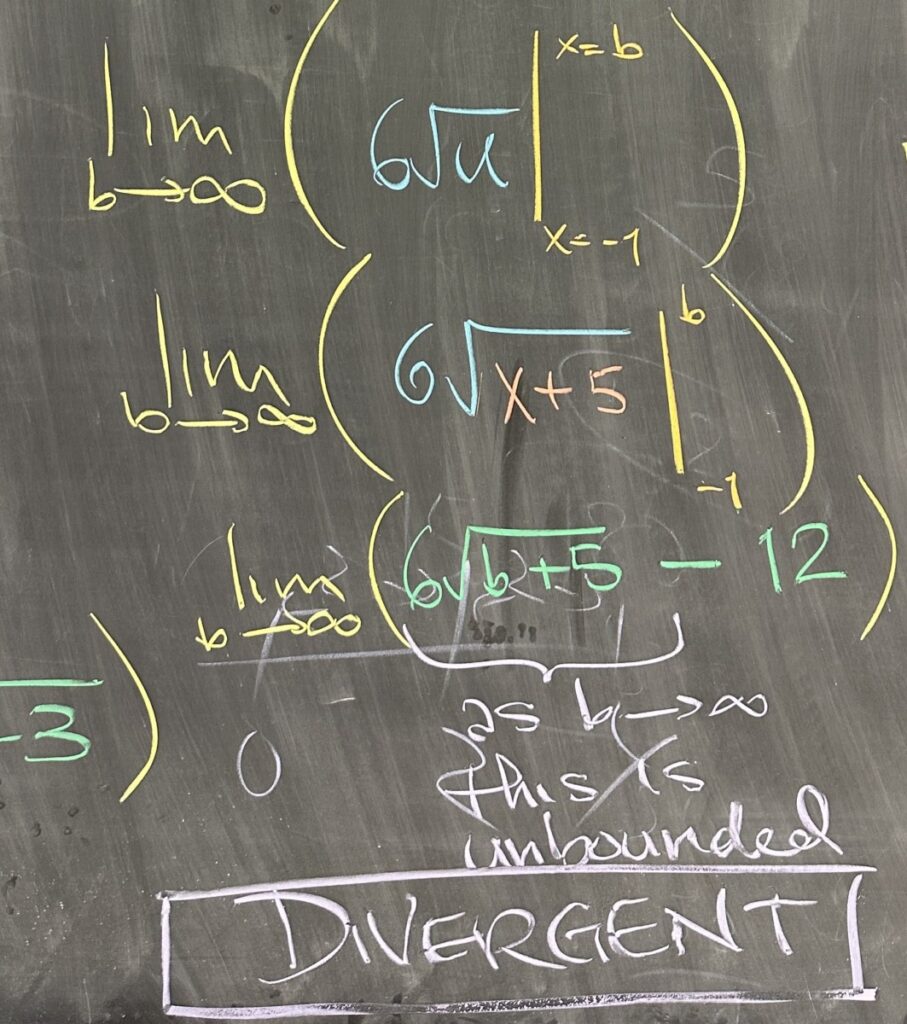 lim b→∞ ( 6√u | x=b x=-1 )
lim b→∞ ( 6√x+5 | b -1 )
lim b→∞ ( 6√b+5 - 12 )
-3 )
0
as b→∞
this is
unbounded
DIVERGENT